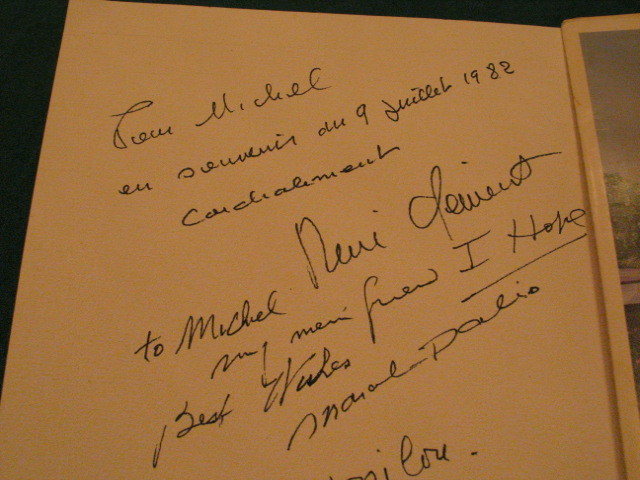 Pour Michel
en souvenir du 9 Juillet 1982
Cordialement
René Clément
to Michel
my friend I Hope
Best Wishes
Marcel Dalio